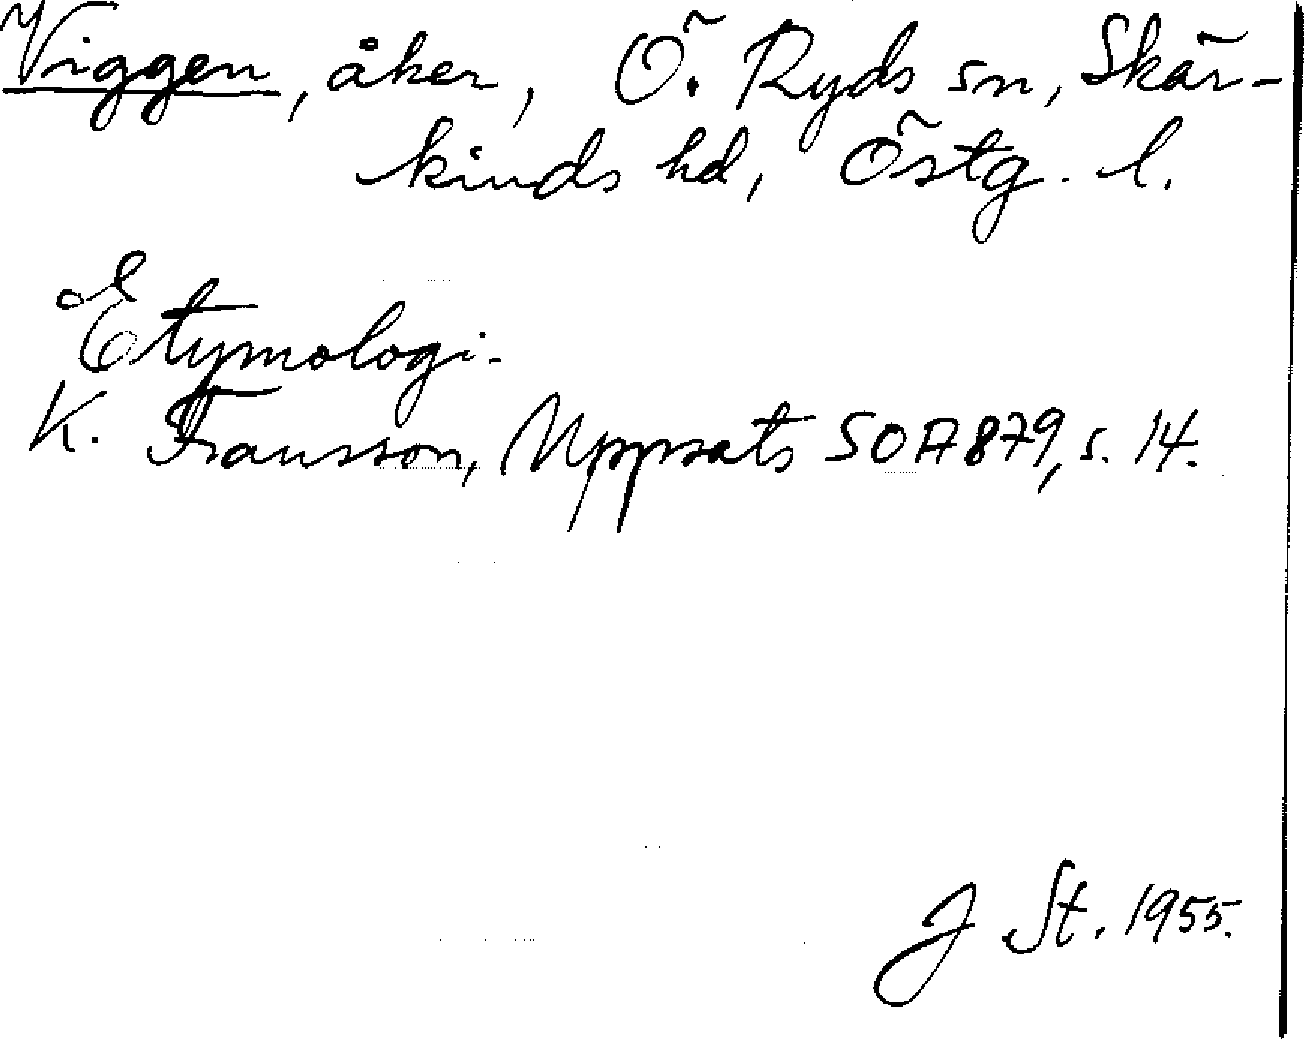 Viggen, åker, Ö. Ryds sn, Skär-
kinds hd, Östg. l.
Etymologi.
K. Fransson, Uppsats SOA 879, s. 14.
J St. 1955.